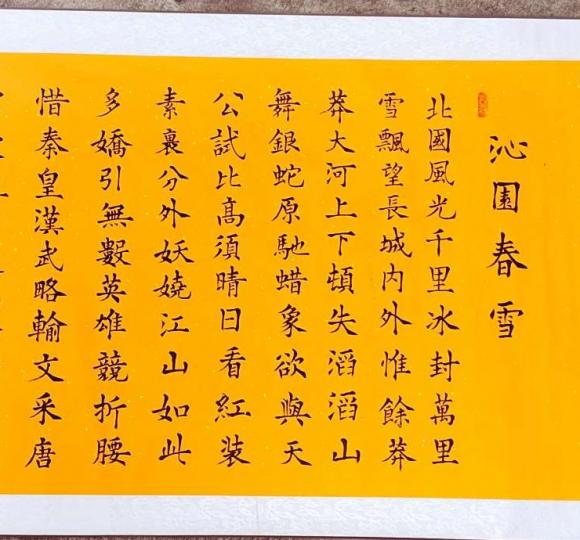 沁園春雪
北國風光千里冰封萬里
雪飄望長城内外惟餘莽
莽大河上下頓失滔滔山
舞銀蛇原馳蜡象欲與天
公試比高須晴日看紅装
素裹分外妖嬈江山如此
多嬌引無數英雄競折腰
惜秦皇漢武略輸文采唐